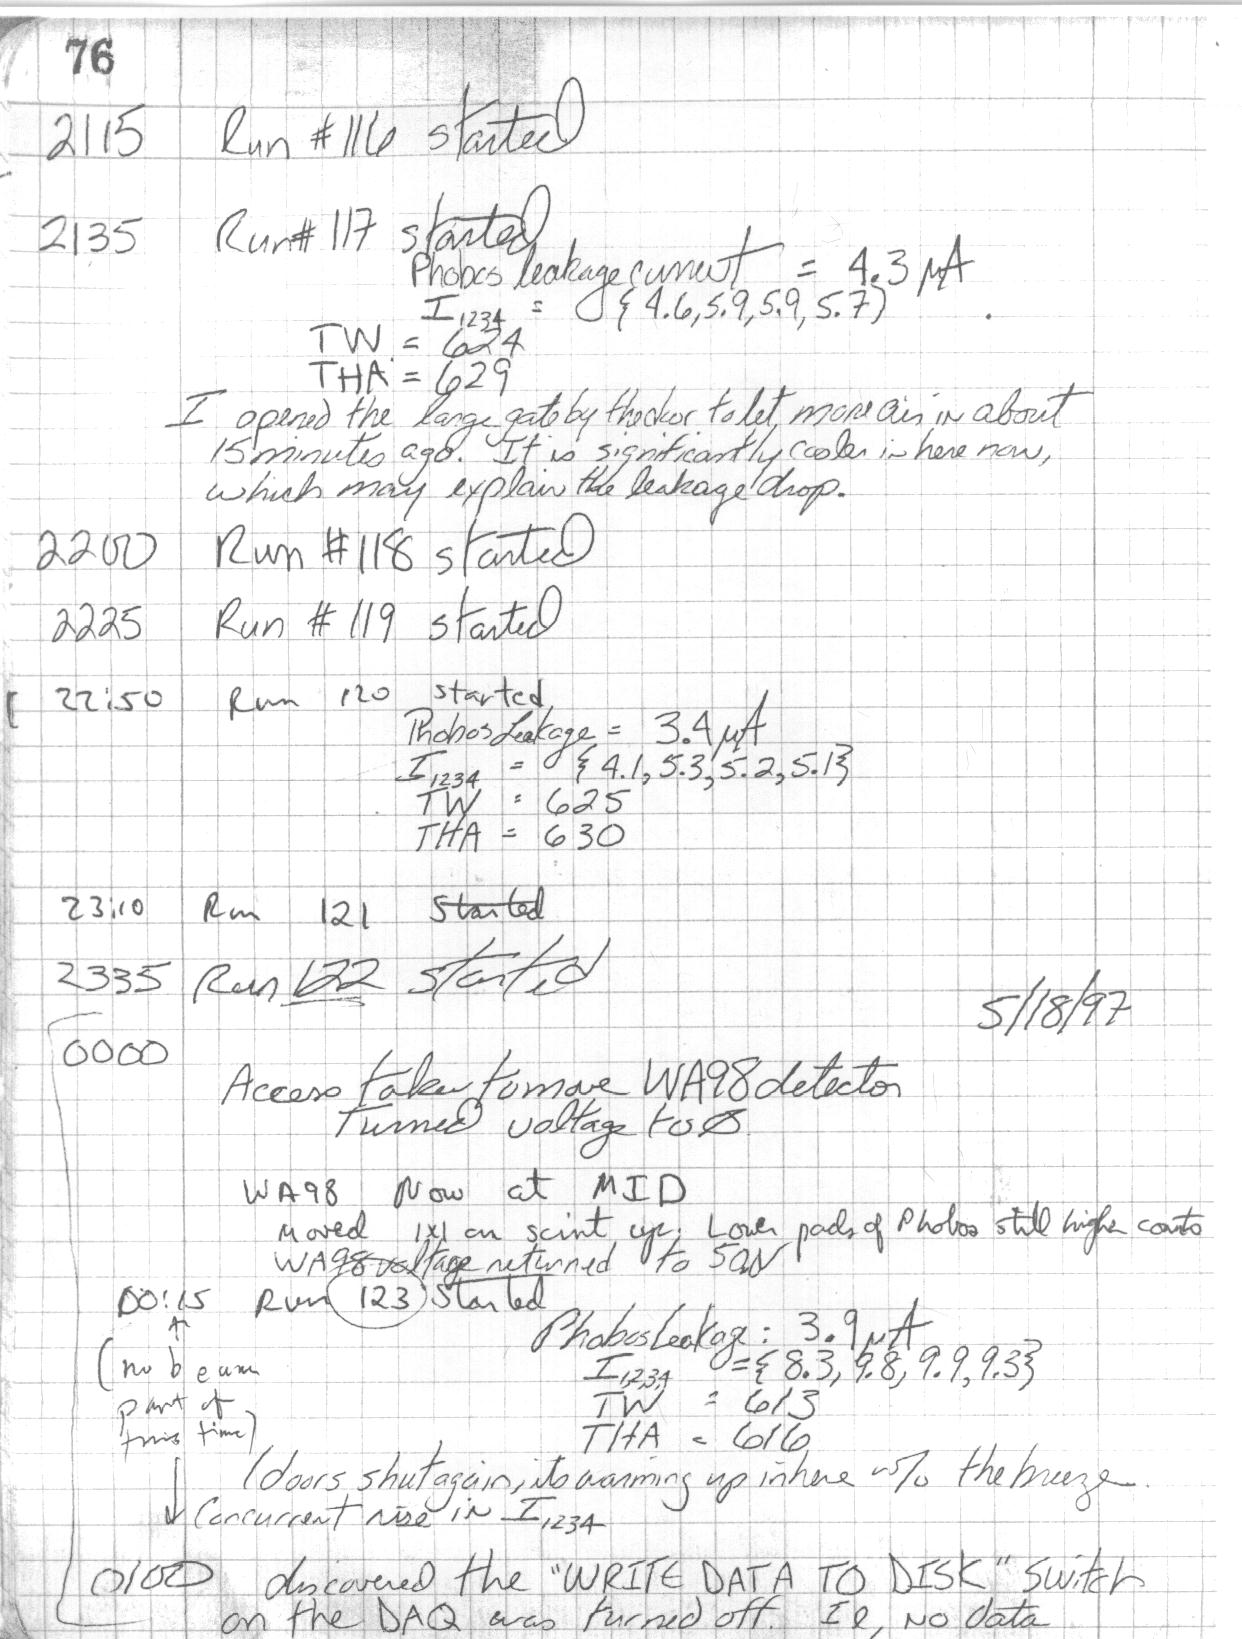 76
2115 Run #116 started
2135 Run# 117 started
Phobos leakage current = 4.3 μA
I1234 = {4.6, 5.9, 5.9, 5.7)
TW = 624
THA = 629
I opened the large gate by the door to let more air in about
15 minutes ago. It is significantly cooler in here now,
which may explain the leakage drop.
2200 Run #118 started
2225 Run #119 started
22:50 Run 120 started
Phobos Leakage = 3.4 μA
I1234 = {4.1, 5.3, 5.2, 5.1}
TW = 625
THA = 630
23:10 Run 121 started
2335 Run 122 started
5/18/97
0000
Access taken to move WA98 detector
Turned voltage to Ø
WA98 Now at MID
Moved 1x1 cm scint up. Lower pads of Phobos still higher counts
WA98 voltage returned to 50V
00:15 Run 123 started
Phobos Leakage: 3.9 μA
I1234 = {8.3, 9.8, 9.9, 9.3}
TW = 613
THA = 616
(no beam
part of
this time)
(doors shut again, its warming up in here w/o the breeze.
Concurrent rise in I1234
0100 discovered the "WRITE DATA TO DISK" switch
on the DAQ was turned off. Ie, NO data